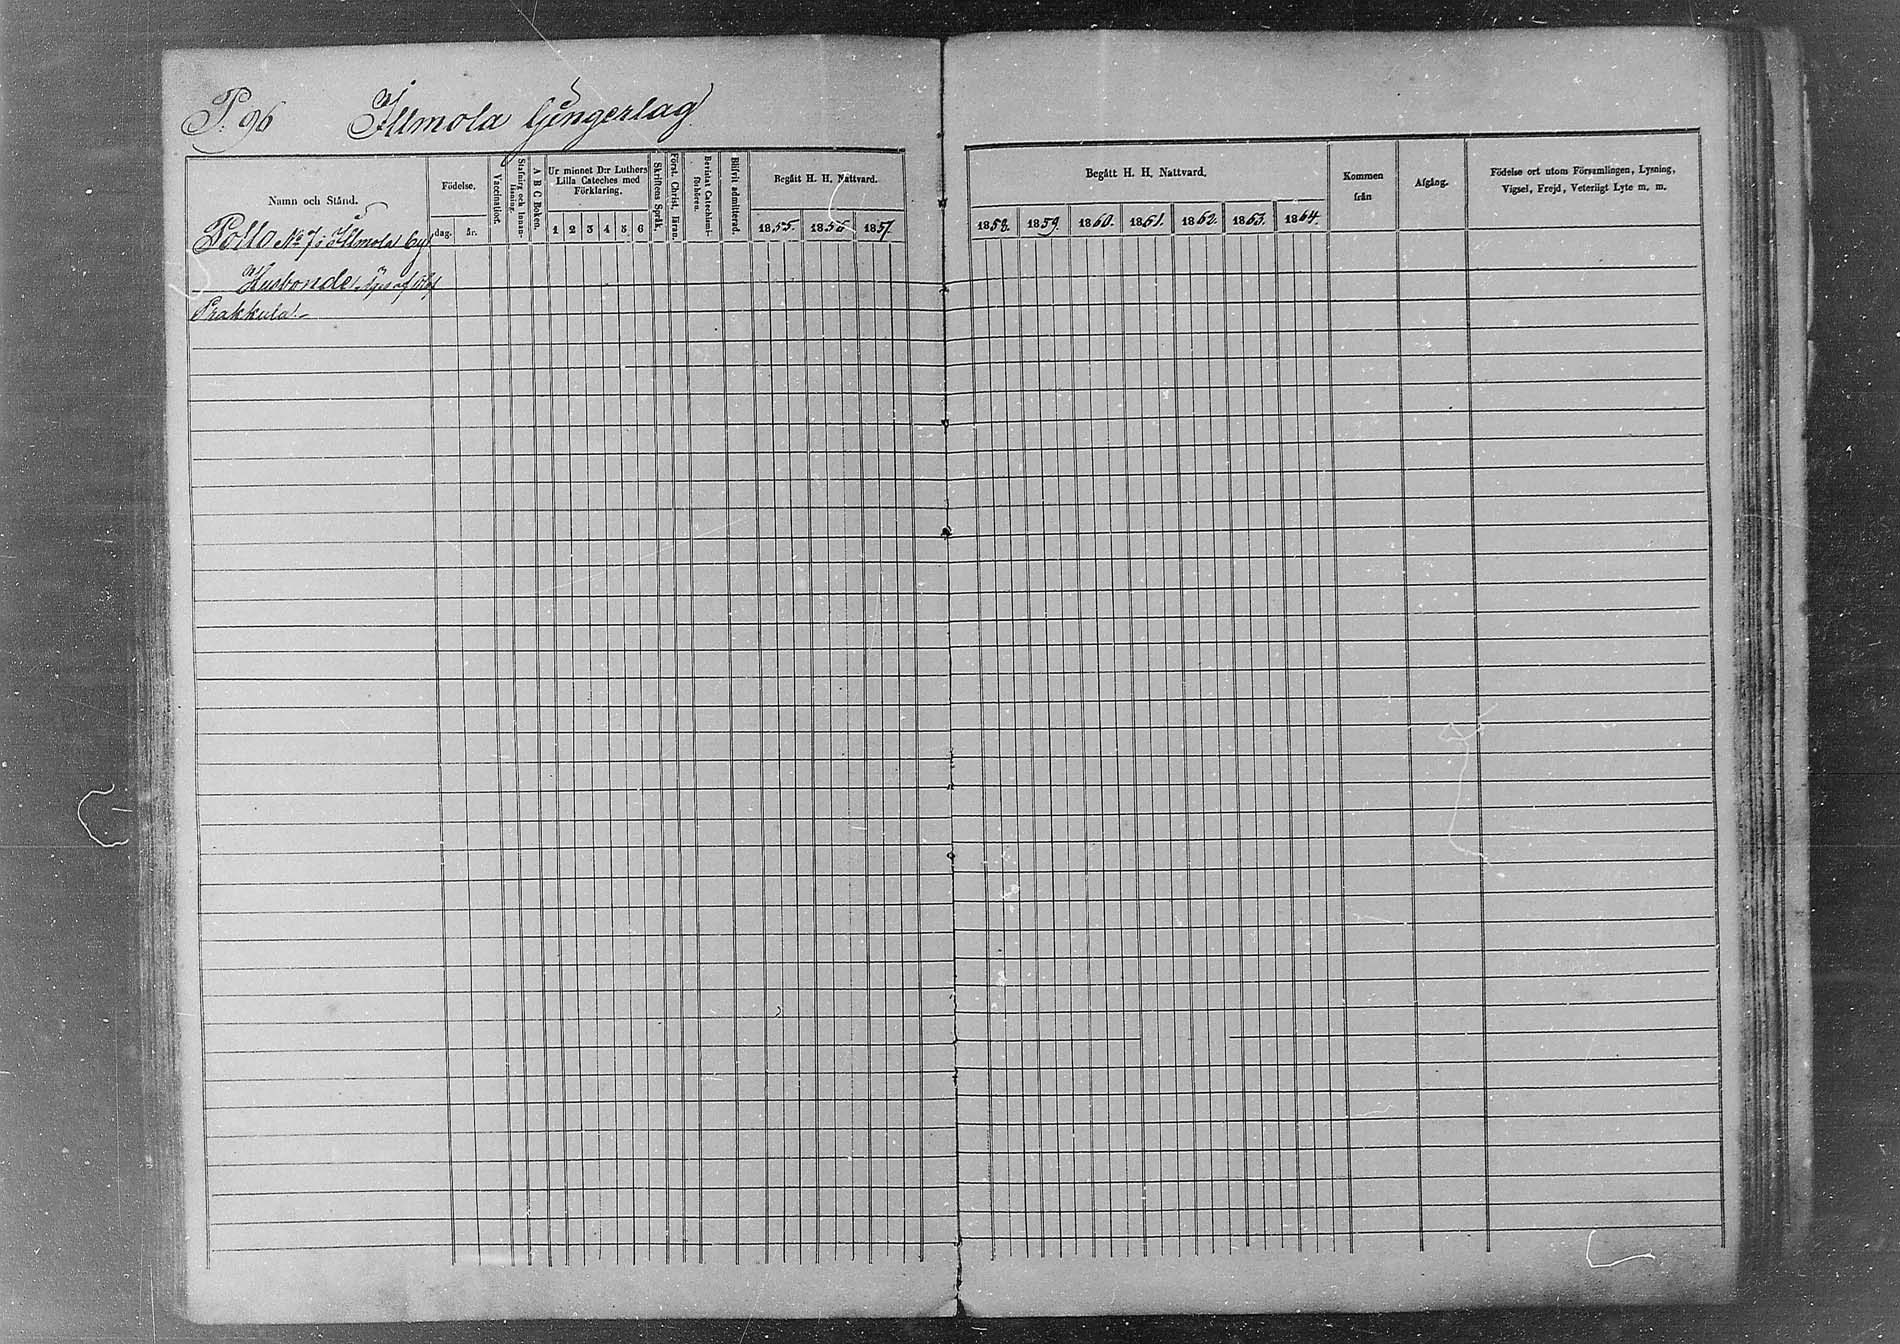 P. 96 Illmola Gungerlag
Namn och Stånd.
Födelse.
dag.
år.
Vaccination.
Stafning och Innan-
läsning.
A B C Boken.
Ur minnet D:r Luthers
Lilla Cateches med
Förklaring.
1 2 3 4 5 6
Skriftens Språk.
Först. Christ. läran.
Bevistat Catechismi-
förhören.
Blifvit admitterad.
Begått H. H. Nattvard.
1855. 1856 1857.
Begått H. H. Nattvard.
1858. 1859. 1860. 1861. 1862. 1863. 1864.
Kommen
från
Afgång.
Födelse ort utom Församlingen, Lysning,
Vigsel, Frejd, Veterligt Lyte m. m.
No 7 i Illmola by
Husbonde
Prakkula